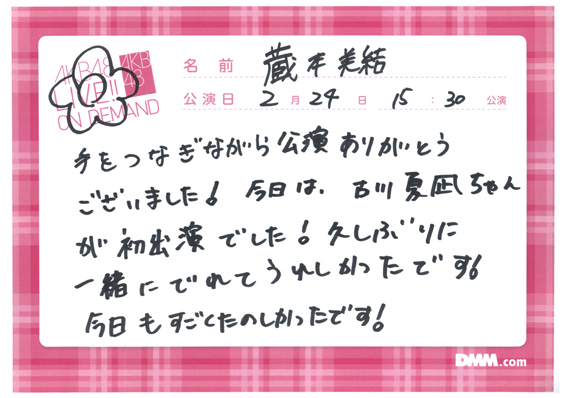 AKB48 LIVE!! ON DEMAND
AKB48
名前 蔵本美結
公演日 2月24日 15:30公演
手をつなぎながら公演ありがとう
ございました! 今日は、古川夏凪ちゃん
が初出演でした! 久しぶりに
一緒にでれてうれしかったです!
今日もすごくたのしかったです!
DMM.com